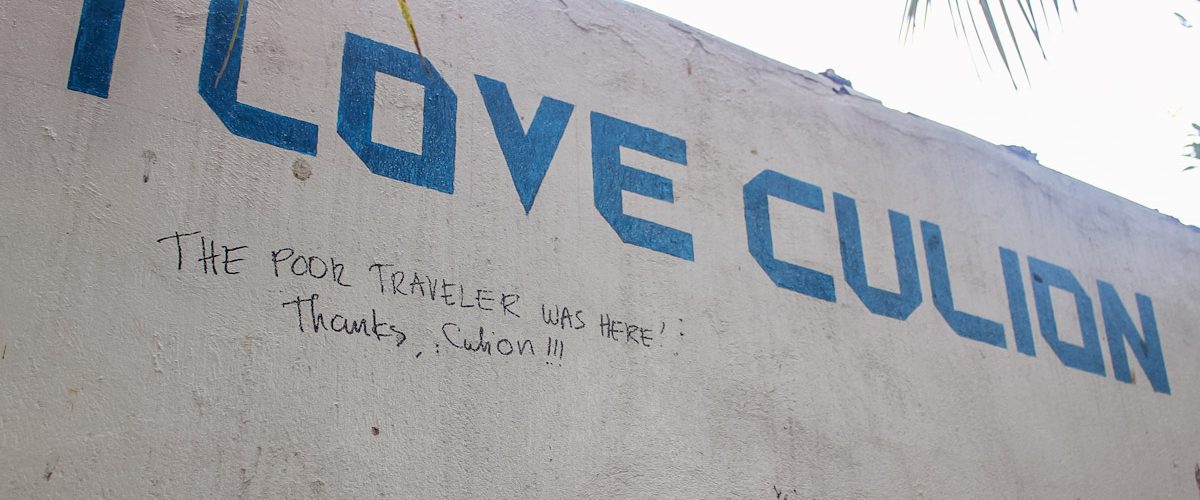 I LOVE CULION
THE POOR TRAVELER WAS HERE!
Thanks, Culion!!!